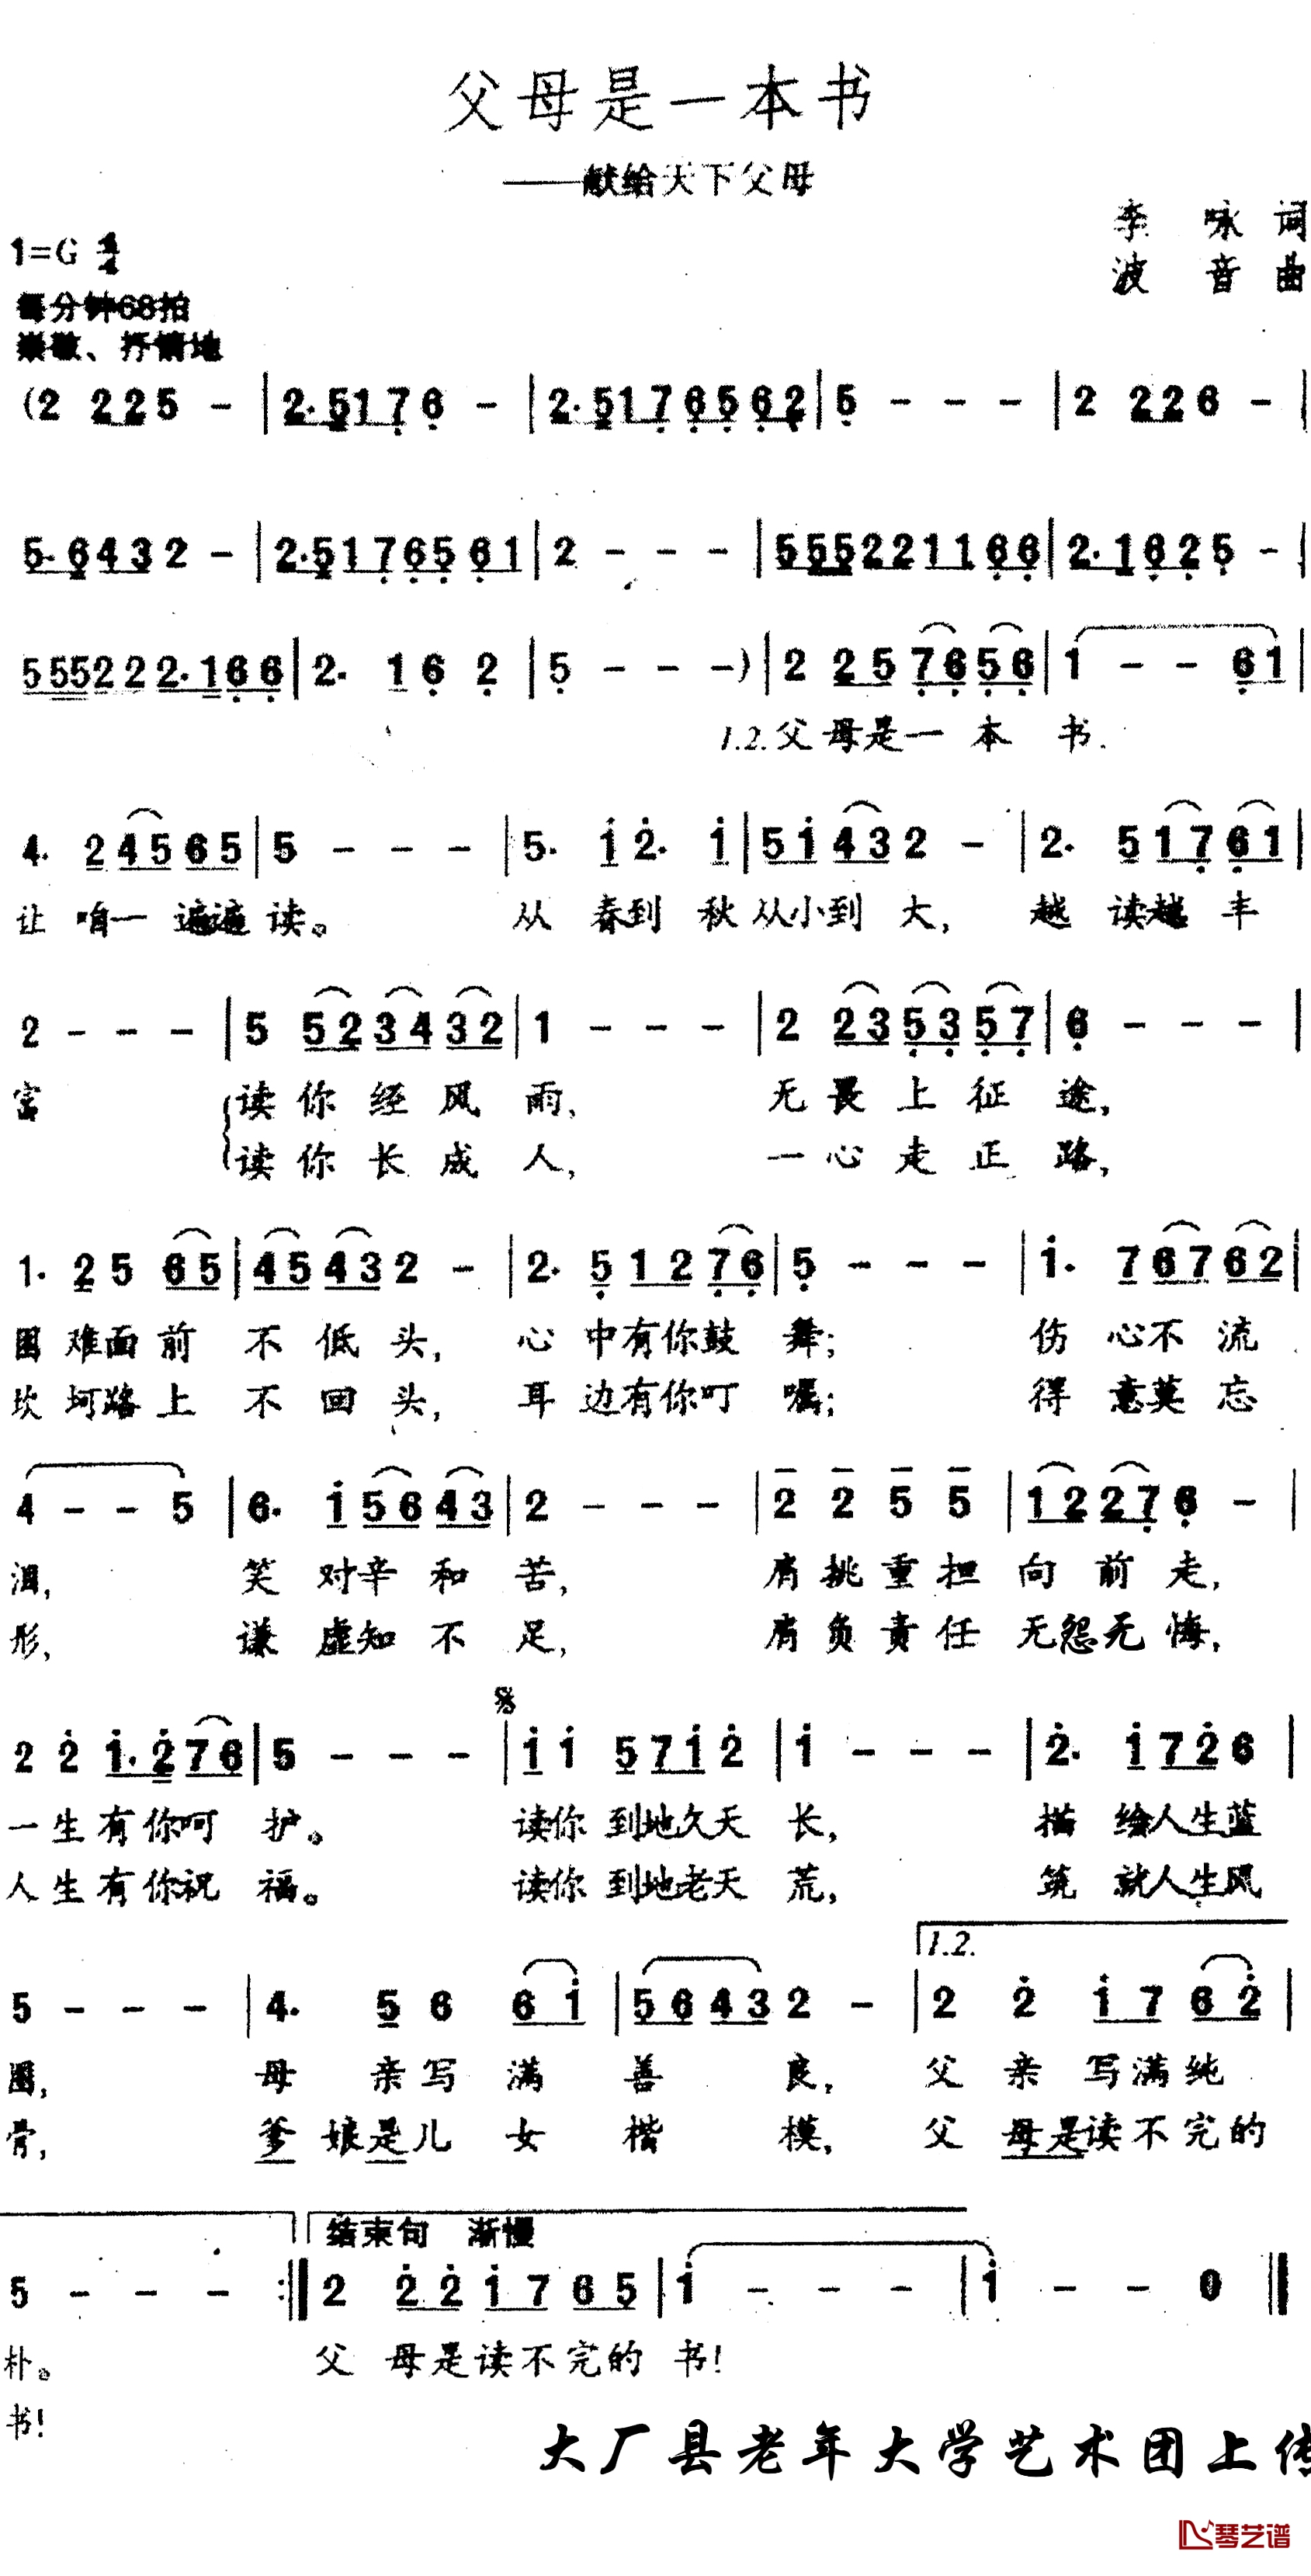 父母是一本书
——献给天下父母
李 咏 词
1=G 4/4
波 音 曲
每分钟68拍
崇敬、抒情地
(2 2 2 5 - | 2. 5 1 7 6 - | 2. 5 1 7 6 5 6 2 | 5 - - - | 2 2 2 6 - |
5. 6 4 3 2 - | 2. 5 1 7 6 5 6 1 | 2 - - - | 5 5 5 2 2 1 1 6 6 | 2. 1 6 2 5 - |
5 5 5 2 2 2. 1 6 6 | 2. 1 6 2 | 5 - - -) | 2 2 5 7 6 5 6 | 1 - - 6 1 |
1.2.父母是一 本 书.
4. 2 4 5 6 5 | 5 - - - | 5. 1 2. 1 | 5 1 4 3 2 - | 2. 5 1 7 6 1 |
让 咱一 遍遍 读。 从 春到 秋 从小到 大, 越 读越 丰
2 - - - | 5 5 2 3 4 3 2 | 1 - - - | 2 2 3 5 3 5 7 | 6 - - - |
富 读你 经 风 雨, 无 畏 上 征 途,
读你 长 成 人, 一 心 走 正 路,
1. 2 5 6 5 | 4 5 4 3 2 - | 2. 5 1 2 7 6 | 5 - - - | 1. 7 6 7 6 2 |
困 难面 前 不 低 头, 心 中有你鼓 舞; 伤 心不 流
坎 坷路 上 不 回 头, 耳 边有你叮 嘱; 得 意莫 忘
4 - - 5 | 6. 1 5 6 4 3 | 2 - - - | 2 2 5 5 | 1 2 2 7 6 - |
泪, 笑 对辛 和 苦, 肩 挑 重 担 向 前 走,
形, 谦 虚知 不 足, 肩 负 责 任 无 怨无 悔,
2 2 1. 2 7 6 | 5 - - - | 1 1 5 7 1 2 | 1 - - - | 2. 1 7 2 6 |
一生 有 你呵 护。 读你 到地久天 长, 描 绘人生蓝
人生 有 你祝 福。 读你 到地老天 荒, 筑 就人生风
1.2.
5 - - - | 4. 5 6 6 1 | 5 6 4 3 2 - | 2 2 1 7 6 2 |
图, 母 亲写 满 善 良, 父 亲 写满纯
骨, 爹 娘是儿 女 楷 模, 父 母是读不完的
结束句 渐慢
5 - - - :| 2 2 2 1 7 6 5 | 1 - - - | 1 - - 0 |
朴。 父 母是读不完的 书!
书!
大厂县老年大学艺术团上传
琴艺谱